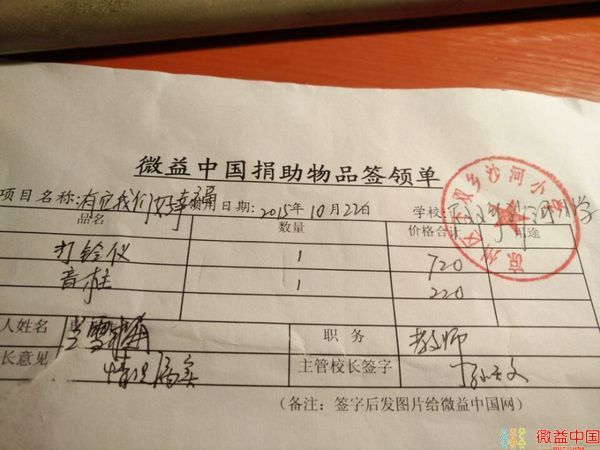 微益中国捐助物品签领单
项目名称: 有你我们好幸福 领用日期: 2015年10月22日 学校:
品名 数量 价格合计 用途
打铃仪 1 720
音柱 1 220
人姓名 职务 教师
长意见 情况属实 主管校长签字
(备注:签字后发图片给微益中国网)
双乡沙河小
微益中国